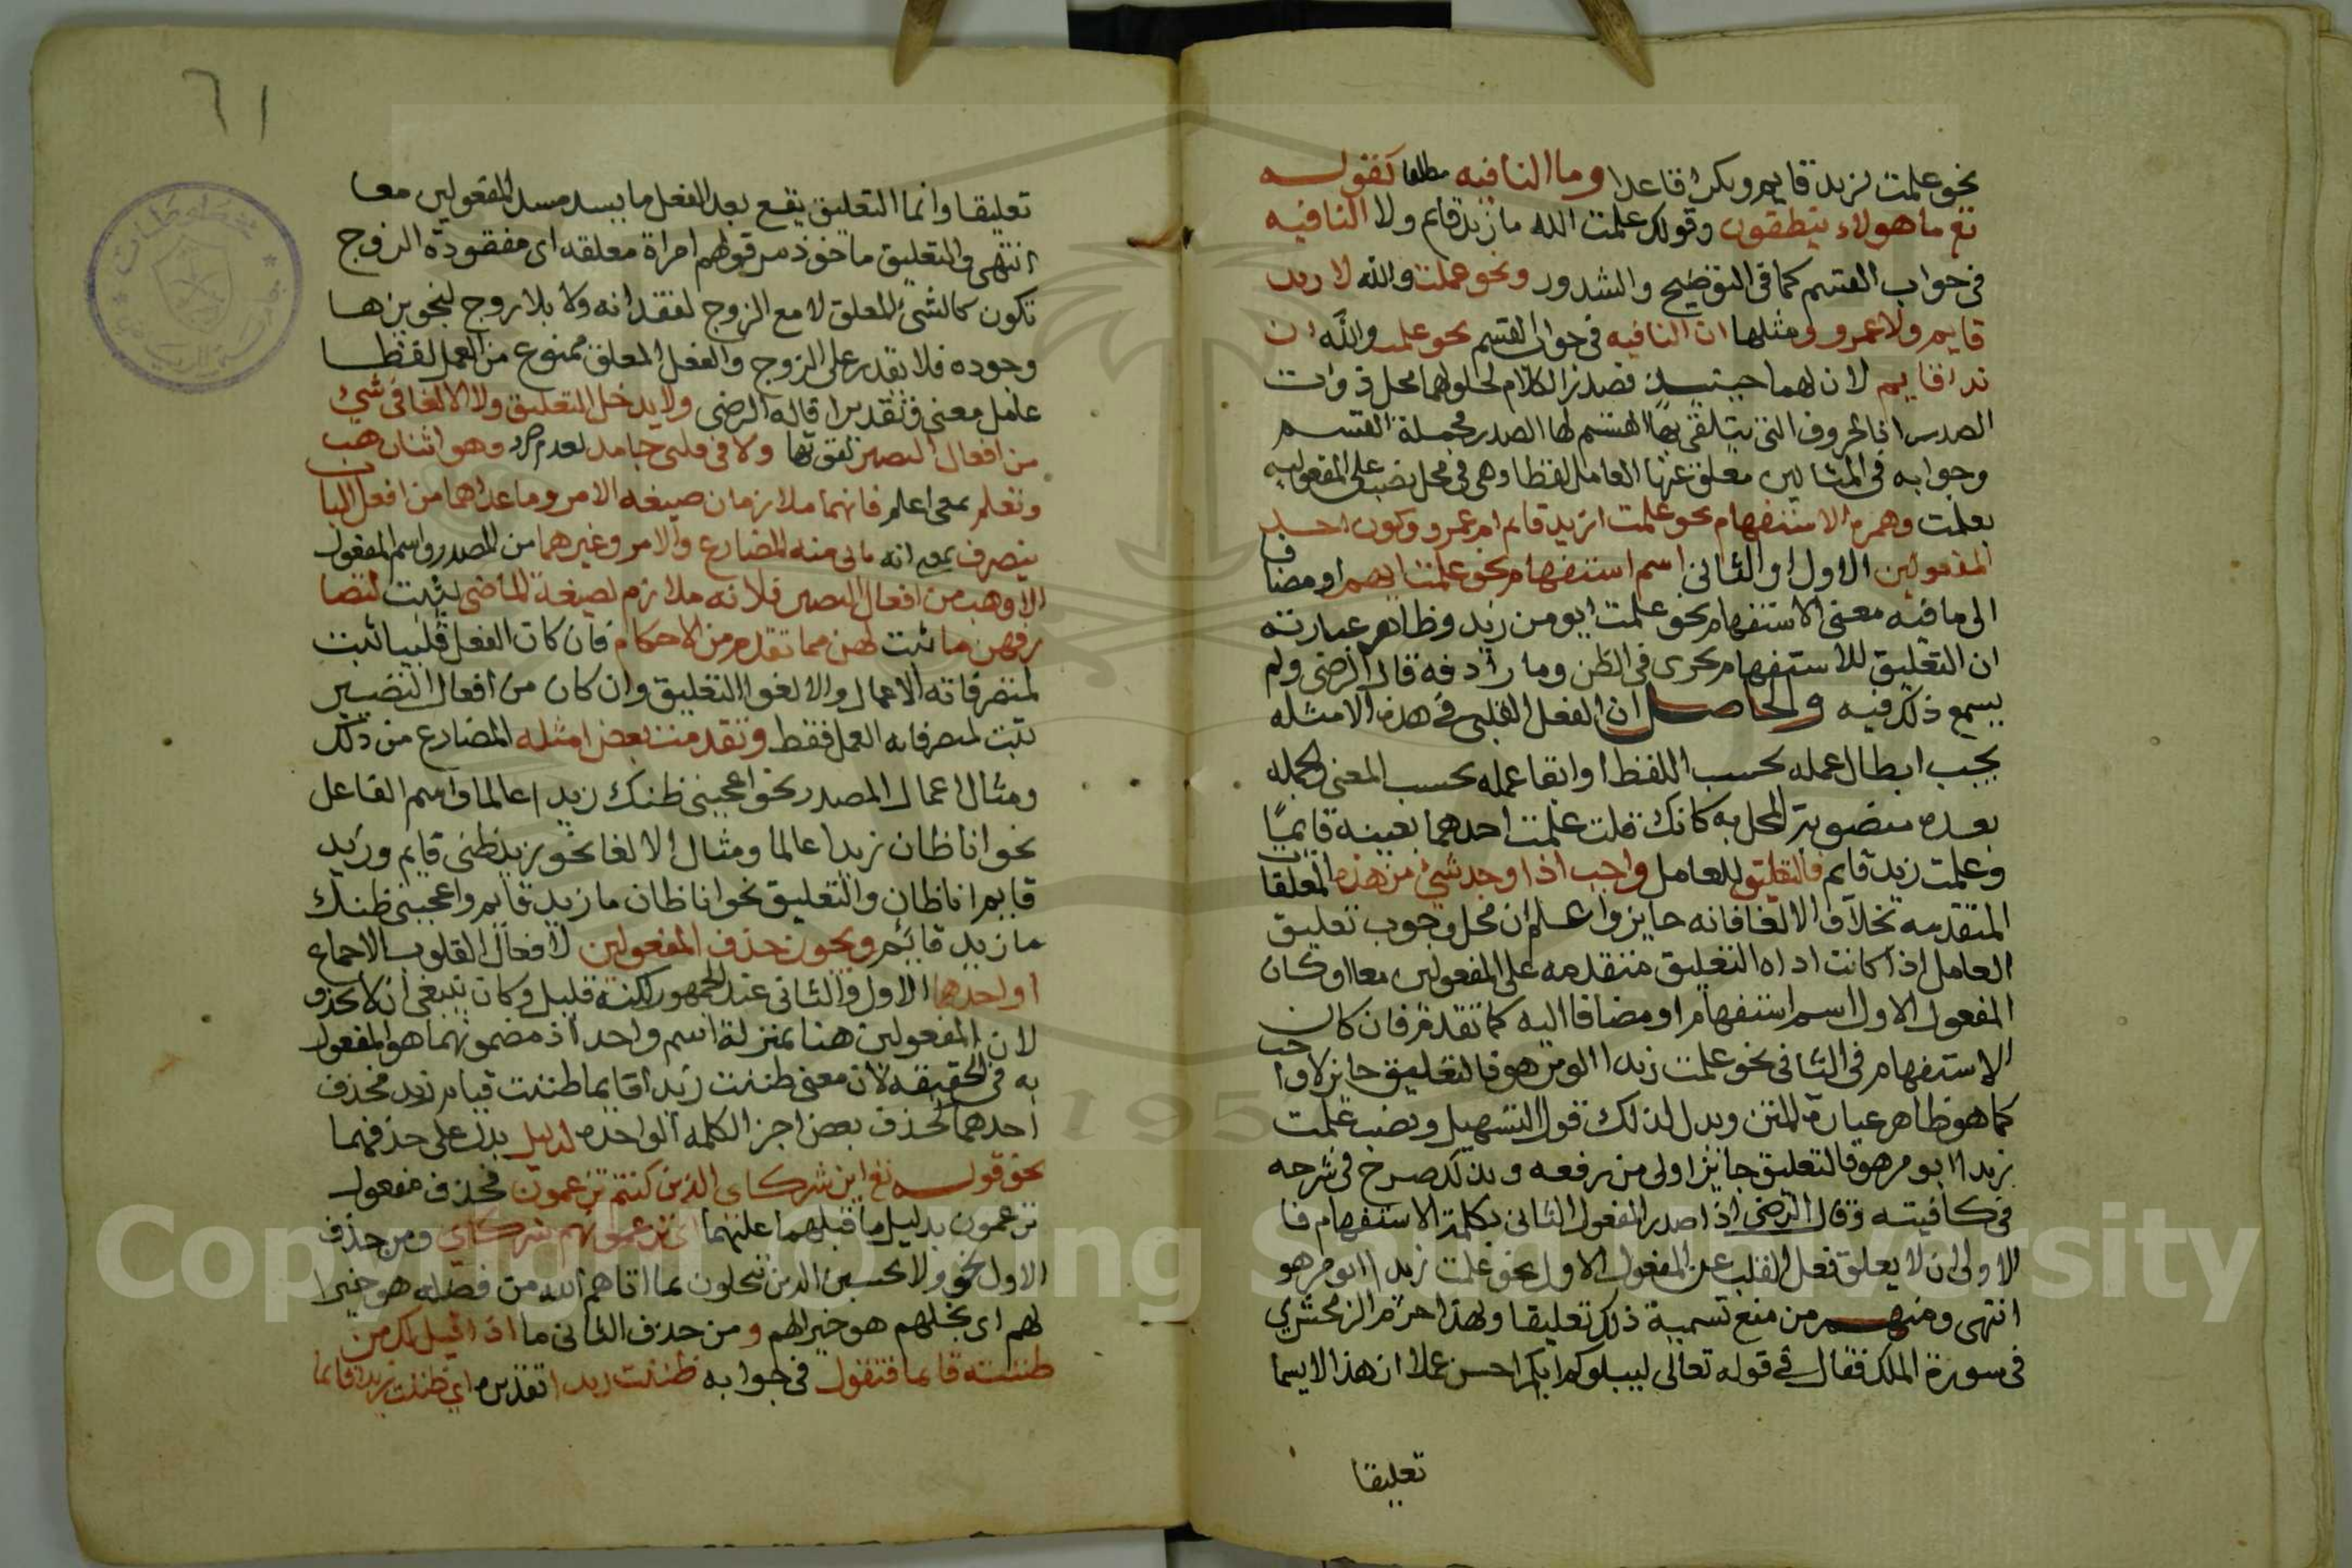 نحو علمت لزيد قايم وبكرا قاعدا وما النافيه مطلقا كقوله
تع ما هولاء ينطقون وقولك علمت الله ما زيد قايم ولا النافيه
في جواب القسم كما في التوضيح والشدور ونحو عملت والله لا زيد
قايم ولا عمرو ومثلها ان النافيه في جواب القسم نحو علمت والله ان
زيد اقايم لان لهما حينيذ صدر الكلام لحلولهما محل ذوات
الصدر اذ الحروف التي يتلقى بها القسم لها الصدر فجملة القسم
وجوابه في المثالين معلق عنها العامل لفظا وهي في محل نصب على المفعوليه
بعلمت وهمزه الاستفهام نحو علمت ازيد قايم ام عمرو وكون احد
المفعولين الاول او الثاني اسم استفهام نحو علمت ايهم او مضاف
الى ما فيه معنى الاستفهام نحو علمت ابو من زيد وظاهر عبارته
ان التعليق للاستفهام يجرى في الظن وما رادفه قال الرضي ولم
يسمع ذلك فيه والحاصل ان الفعل القلبي في هذه الامثله
يجب ابطال عمله بحسب اللفظ او ابقا عمله بحسب المعنى والجمله
بعده منصوبة المحل به كانك قلت علمت احدهما بعينه قايمًا
وعلمت زيد قايم فالتعليق للعامل واجب اذا وجد شيئ من هذه المعلقات
المتقدمه بخلاف الالغا فانه جايز واعلم ان محل وجوب تعليق
العامل اذا كانت اداه التعليق متقدمه على المفعولين معا او كان
المفعول الاول اسم استفهام او مضافا اليه كما تقدم فان كان
الاستفهام في الثاني نحو علمت زيدا ابو من هو فالتعليق جايز لا واجب
كما هو ظاهر عبارة المتن ويدل لذلك قول التسهيل ونصب علمت
زيدا ابو من هو فالتعليق جايز اولى من رفعه وبذلك صرح في شرحه
في كافيته وقال الرضي اذا صدر المفعول الثاني بكلمة الاستفهام فا
الاولى ان لا يعلق فعل القلب عن المفعول الاول نحو علمت زيدا ابو من هو
انتهى ومنهم من منع تسمية ذلك تعليقا ولهذا جزم الزمخشري
في سورة الملك فقال في قوله تعالى ليبلوكم ايكم احسن عملا ان هذا لا يسما
تعليقا
٦١
تعليقا وانما التعليق يقع بعد الفعل ما يسد مسد المفعولين معا
انتهى والتعليق ماخوذ من قولهم امراة معلقه اى مفقودة الزوج
تكون كالشئ المعلق لا مع الزوج لفقدانه ولا بلا زوج لتجويزها
وجوده فلا تقدر على الزوج والفعل المعلق ممنوع من العمل لفظا
عامل معنى وتقديرا قاله الرضي ولا يدخل التعليق ولا الالغا في شئ
من افعال التصيير لقوتها ولا في قلبي جامد لعدم تصرفه وهو اثنان هب
وتعلم بمعنى اعلم فانهما ملازمان صيغه الامر وما عداهما من افعال الباب
يتصرف بمعنى انه ياتي منه المضارع والامر وغيرهما من المصدر واسم المفعول
الا وهب من افعال التصيير فلانه ملازم لصيغة الماضي يثبت لتصا
رفهن ما ثبت لهن مما تقدم من الاحكام فان كان الفعل قلبيا ثبت
لمتصرفاته الاعمال والالغوا التعليق وان كان من افعال التصيير
ثبت لمتصرفاته العمل فقط وتقدمت بعض امثله المضارع من ذلك
ومثال اعمال المصدر نحو اعجبني ظنك زيدا عالما واسم الفاعل
نحو انا ظان زيدا عالما ومثال الالغا نحو زيد ظني قايم وزيد
قايم انا ظان والتعليق نحو انا ظان ما زيد قايم واعجبني ظنك
ما زيد قايم ويجوز حذف المفعولين لافعال القلوب بالاجماع
او احدهما الاول والثاني عند الجمهور لكنه قليل وكان ينبغي ان لا يحذف
لان المفعولين هنا بمنزلة اسم واحد اذ مضمونهما هو المفعول
به في الحقيقه لان معنى ظننت زيدا قايما ظننت قيام زيد فحذف
احدهما كحذف بعض اجزا الكلمه الواحده لدليل يدل على حذفهما
نحو قوله تع اين شركاى الذين كنتم تزعمون فحذف مفعول
تزعمون بدليل ما قبلهما علنهما اى تزعمونهم شركاي ومن حذف
الاول نحو ولا تحسبن الذين يبخلون بما اتاهم الله من فضله هو خيرا
لهم اى بخلهم هو خيرا لهم ومن حذف الثاني ما اذا قيل لك من
ظننته قايما فتقول في جوابه ظننت زيدا تقديره اى ظننت زيدا قايما